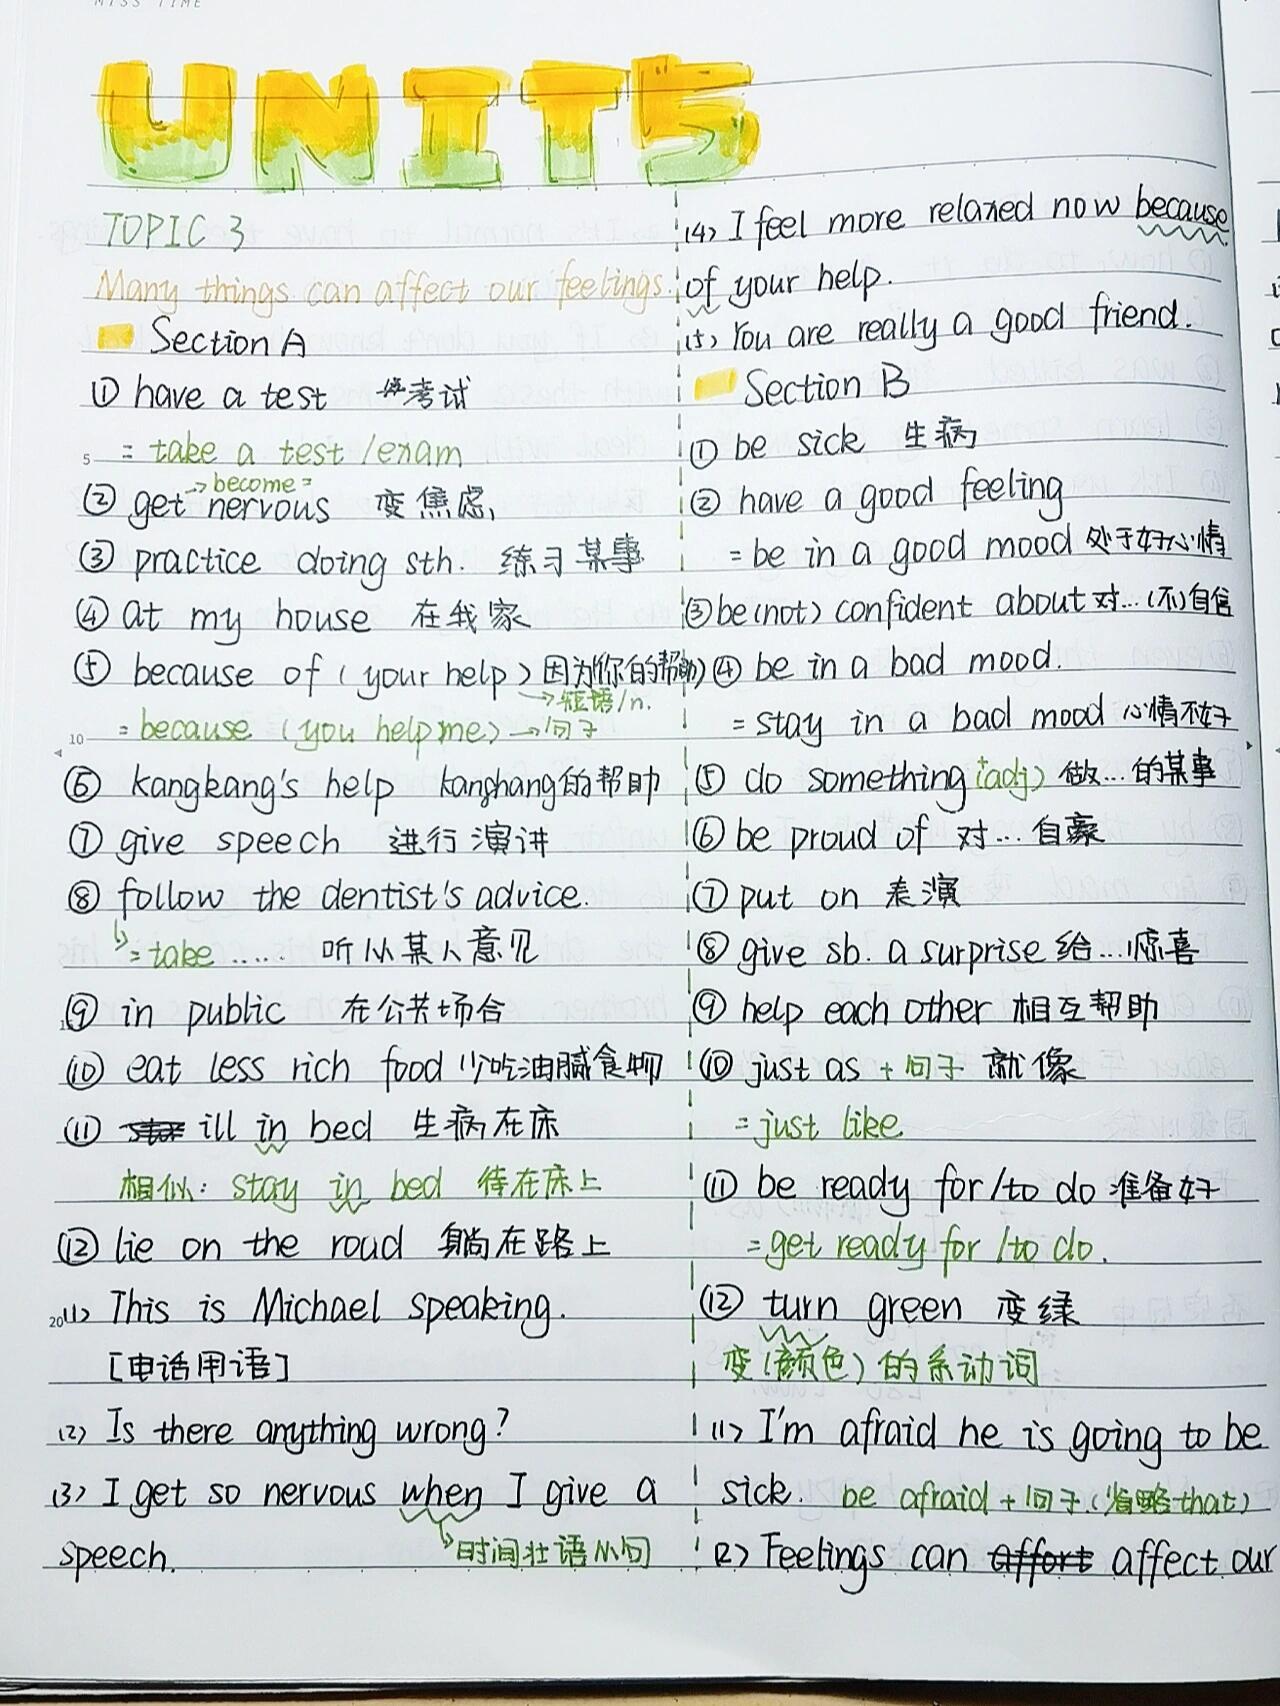 MISS TIME
UNIT5
TOPIC 3
Many things can affect our feelings.
Section A
① have a test 考试
= take a test / exam
→ become =
② get nervous 变焦虑
③ practice doing sth. 练习某事
④ at my house 在我家
⑤ because of (your help) 因为(你的帮助)
→短语/n.
= because (you help me) →句子
⑥ kangkang's help kangkang的帮助
⑦ give speech 进行演讲
⑧ follow the dentist's advice.
= take ...... 听从某人意见
⑨ in public 在公共场合
⑩ eat less rich food 少吃油腻食物
⑪ ill in bed 生病在床
相似: stay in bed 待在床上
⑫ lie on the road 躺在路上
(1) This is Michael speaking.
[电话用语]
(2) Is there anything wrong?
(3) I get so nervous when I give a
speech. 时间状语从句
(4) I feel more relaxed now because
of your help.
(5) You are really a good friend.
Section B
① be sick 生病
② have a good feeling
= be in a good mood 处于好心情
③ be (not) confident about 对...(不)自信
④ be in a bad mood.
= stay in a bad mood 心情不好
⑤ do something (+adj) 做...的某事
⑥ be proud of 对...自豪
⑦ put on 表演
⑧ give sb. a surprise 给...惊喜
⑨ help each other 相互帮助
⑩ just as + 句子 就像
= just like
⑪ be ready for / to do 准备好
= get ready for / to do.
⑫ turn green 变绿
变(颜色)的系动词
(1) I'm afraid he is going to be
sick. be afraid + 句子 (省略that)
(2) Feelings can affort affect our